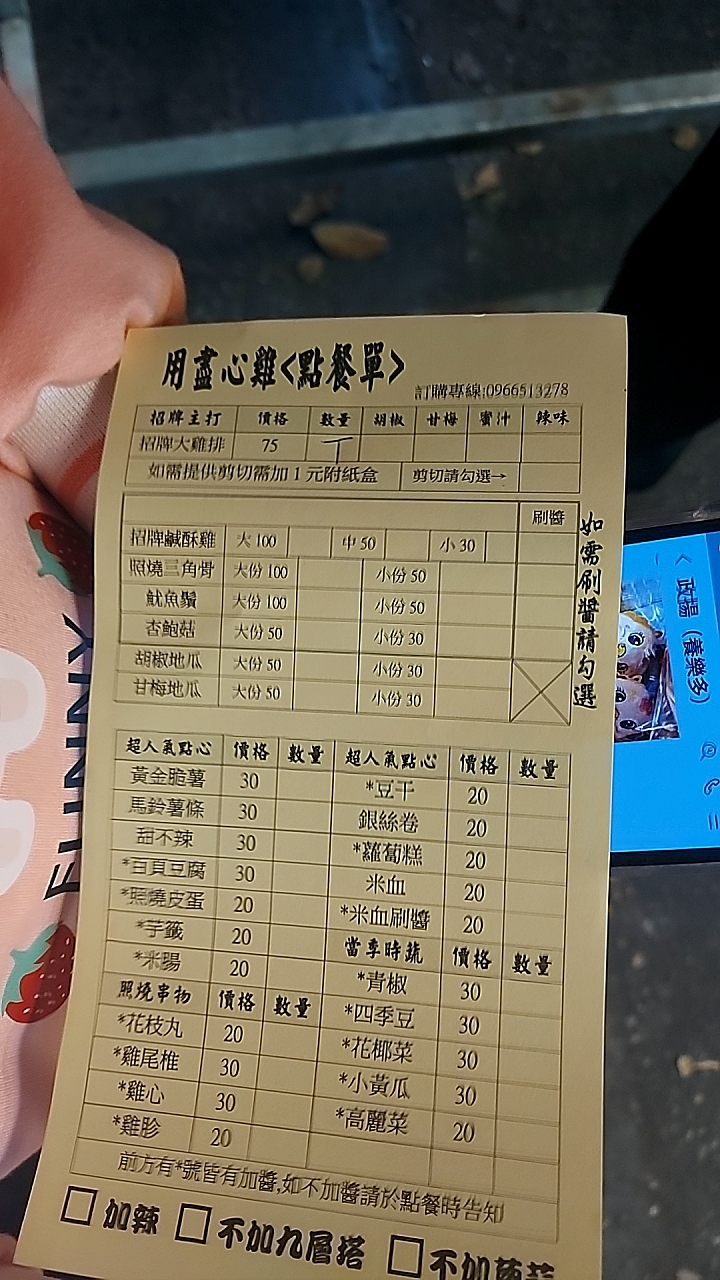 用盡心雞<點餐單>
訂購專線:0966513278
招牌主打 價格 數量 胡椒 甘梅 蜜汁 辣味
招牌大雞排 75
如需提供剪切需加1元附紙盒 剪切請勾選→
刷醬
招牌鹹酥雞 大100 中50 小30
照燒三角骨 大份100 小份50
魷魚鬚 大份100 小份50
杏鮑菇 大份50 小份30
胡椒地瓜 大份50 小份30
甘梅地瓜 大份50 小份30
如需刷醬請勾選
超人氣點心 價格 數量 超人氣點心 價格 數量
黃金脆薯 30 *豆干 20
馬鈴薯條 30 銀絲卷 20
甜不辣 30 *蘿蔔糕 20
*百頁豆腐 30 米血 20
*照燒皮蛋 20 *米血刷醬 20
*芋籤 20 當季時蔬 價格 數量
*米腸 20 *青椒 30
照燒串物 價格 數量 *四季豆 30
*花枝丸 20 *花椰菜 30
*雞尾椎 30 *小黃瓜 30
*雞心 30 *高麗菜 20
*雞胗 20
前方有*號皆有加醬,如不加醬請於點餐時告知
加辣 不加九層塔 不加
FUNNY
政揚（養樂多）